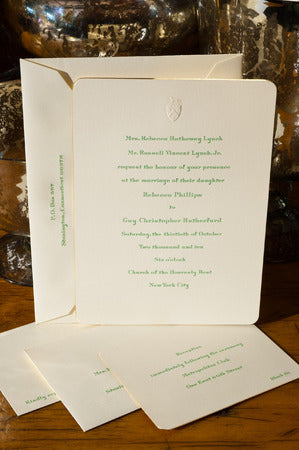 Mrs. Rebecca Hathaway Lynch
Mr. Russell Vincent Lynch, Jr.
request the honour of your presence
at the marriage of their daughter
Rebecca Phillips
to
Guy Christopher Rutherford
Saturday, the thirtieth of October
Two thousand and ten
Six o'clock
Church of the Heavenly Rest
New York City
P.O. Box
Stonington, Connecticut
Reception
immediately following the ceremony
Metropolitan Club
One East 60th Street
Black tie
Kindly